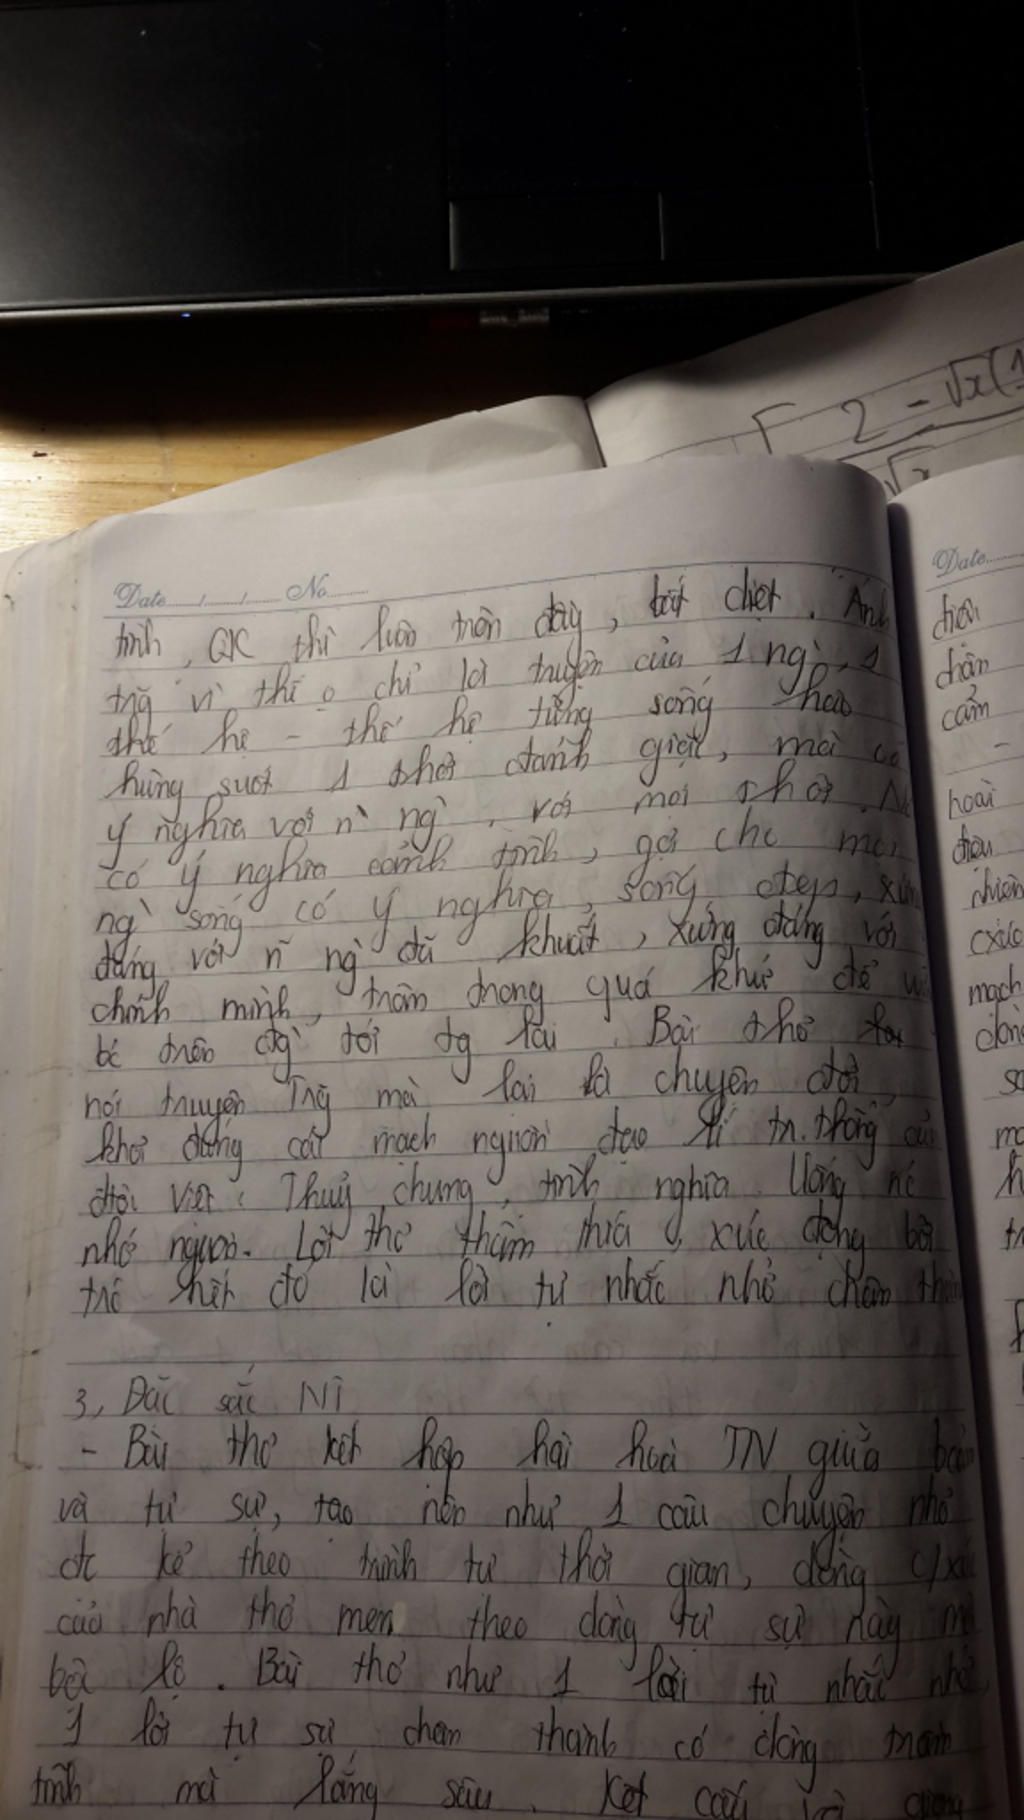 2 - √x(1
√x
Date...../...../..... No..........
tình, QK thì luôn tròn đầy, bất diệt. Ánh
trg vì thế o chỉ là truyện của 1 ng', 1
thế hệ - thế hệ từng sống hào
hùng suốt 1 thời đánh giặc, mà có
ý nghĩa với n` ng`, với mọi thời.
có ý nghĩa cảnh tỉnh, gợi cho mọi
ng` sống có ý nghĩa, sống đẹp, xứng
đáng với n~ ng` đã khuất, xứng đáng với
chính mình, trân trọng quá khứ để
bc trên đg` tới tg lai. Bài thơ
nói truyện Trg mà lại là chuyện đời,
khơi đúng cái mạch nguồn đạo lí tr.thống
đời Việt: Thuỷ chung, tình nghĩa. Uống nc
nhớ nguồn. Lời thơ thấm thía, xúc động bởi
trc hết đó là lời tự nhắc nhở chân thành
3, Đặc sắc NT
- Bài thơ kết hợp hài hoà TN giữa
và tự sự, tạo nên như 1 câu chuyện nhỏ
đc kể theo trình tự thời gian, dòng c/xúc
của nhà thơ men theo dòng tự sự này mà
bộc lộ. Bài thơ như 1 lời tự nhắc nhở,
1 lời tự sự chân thành có dáng trầm
tĩnh mà lắng sâu. Kết cấu và giọng
Date.....
chân
cảm
-
hoài
nhiên
cxúc
mạch
dòng